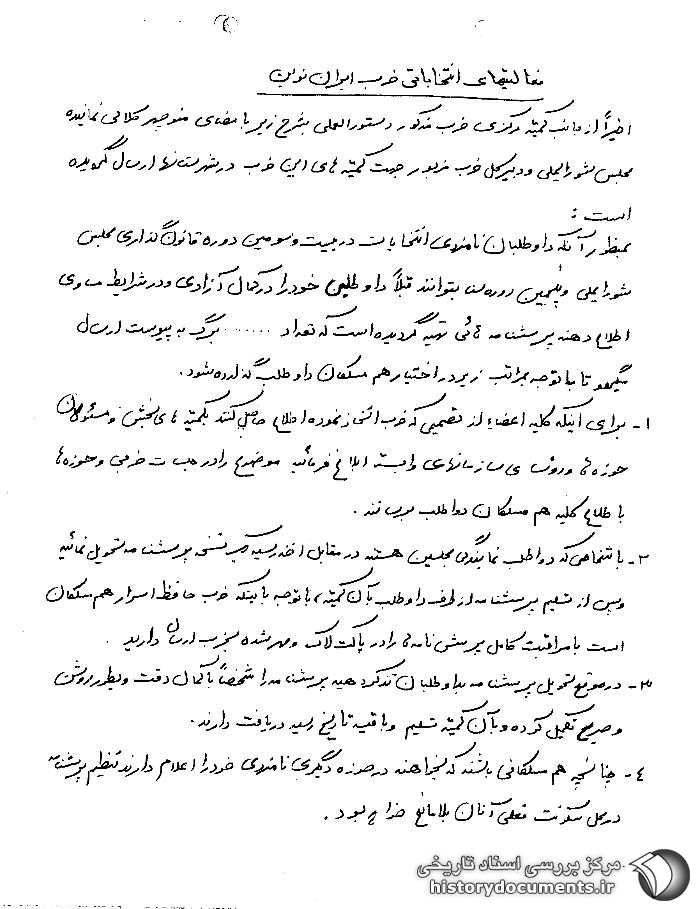 فعالیتهای انتخاباتی حزب ایران نوین
اخیراً از جانب کمیته مرکزی حزب مذکور دستورالعملی بشرح زیر بامضای منوچهر کلالی نماینده
مجلس شورایملی و دبیرکل حزب مزبور جهت کمیته های این حزب در شهرستانها ارسال گردیده
است :
بمنظور آنکه داوطلبان نامزدی انتخابات در بیست و سومین دوره قانون گذاری مجلس
شورایملی و دوره سنا بتوانند قبلاً داوطلبی خود را در کمال آزادی و در شرایط مساوی
اطلاع دهند پرسشنامه هائی تهیه گردیده است که تعداد ...... برگ به پیوست ارسال
میگردد تا با توجه بمراتب زیر در اختیار هم مسلکان داوطلب گذارده شود .
۱- برای اینکه کلیه اعضاء از تصمیمی که حزب اتخاذ نموده اطلاع حاصل کنند بکمیته های بخش و مسئولان
حوزه ها و روسای سازمانهای وابسته ابلاغ فرمائید موضوع را در جلسات حزبی و حوزه ها
باطلاع کلیه هم مسلکان داوطلب برسانند .
۲- باشخاصی که داوطلب نمایندگی مجلسین هستند در مقابل اخذ رسید یک نسخه پرسشنامه تحویل نمائید
و پس از تسلیم پرسشنامه از طرف داوطلب بآن کمیته ، با توجه باینکه حزب حافظ اسرار هم مسلکان
است با مراقبت کامل پرسش نامه ها را در پاکت لاک و مهر شده بحزب ارسال دارید .
۳- در موقع تحویل پرسشنامه بداوطلبان تذکر دهید پرسشنامه را شخصاً با کمال دقت و بطور روشن
و صریح تکمیل کرده و بآن کمیته تسلیم و با قید تاریخ رسید دریافت دارند .
٤- چنانچه هم مسلکانی باشند که بخواهند در حوزه دیگری نامزدی خود را اعلام دارند تنظیم پرسشنامه
در محل سکونت فعلی آنان بلامانع خواهد بود .
مرکز بررسی اسناد تاریخی
historydocuments.ir